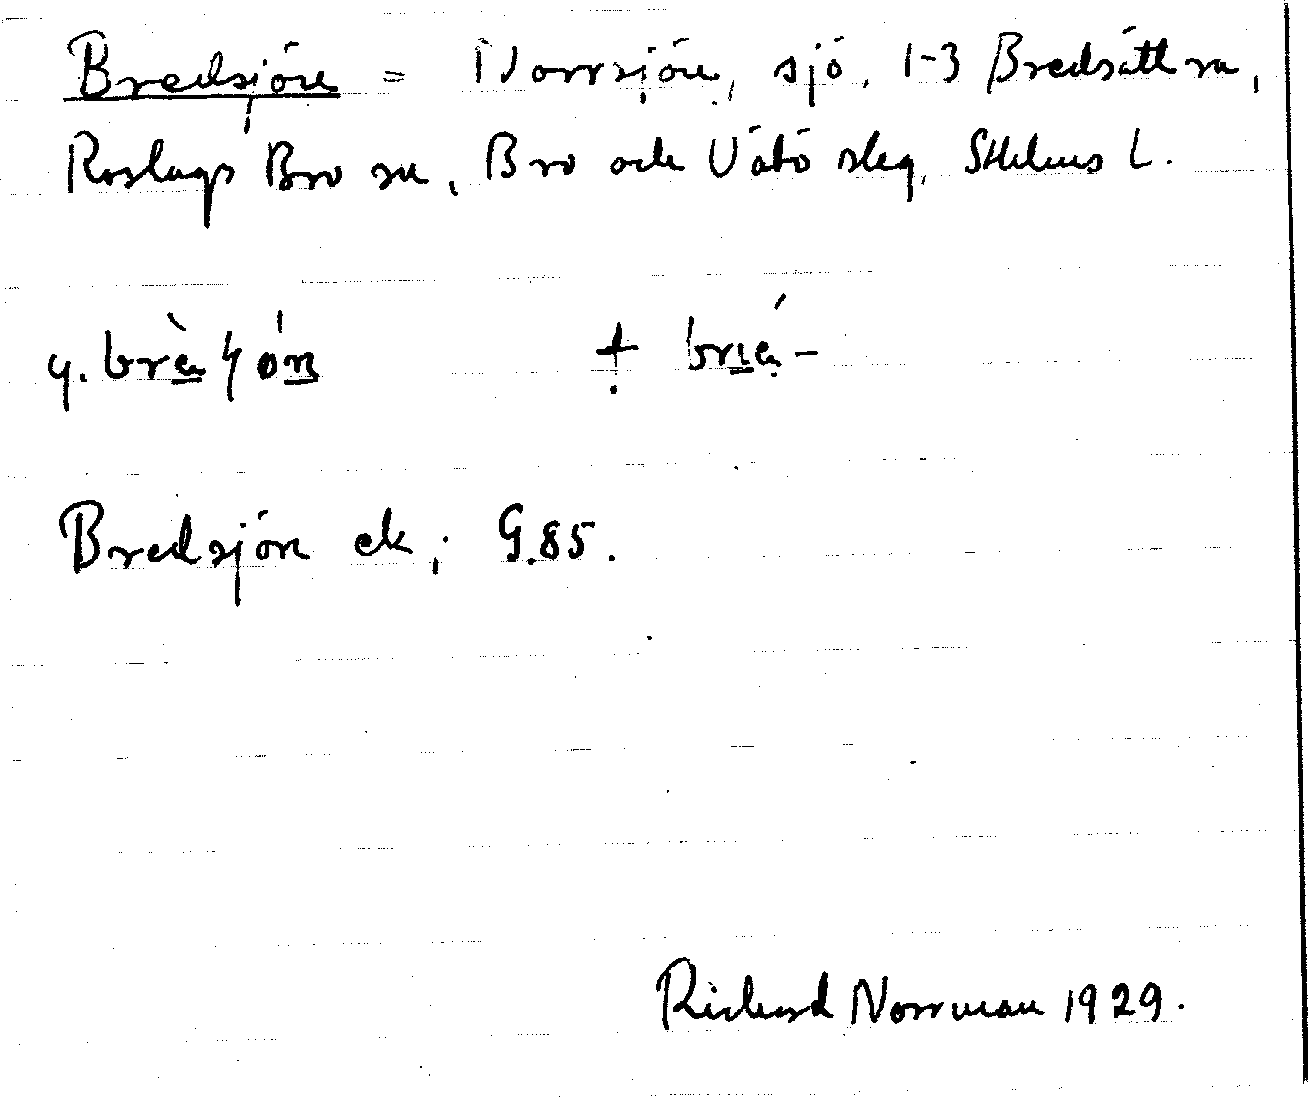 Bredsjön = Norrsjön, sjö, 1-3 Bredsättra,
Roslags Bro sn, Bro och Vätö slag, Sthlms L.
y.
+
Bredsjön ek; G.85.
Richard Norrman 1929.